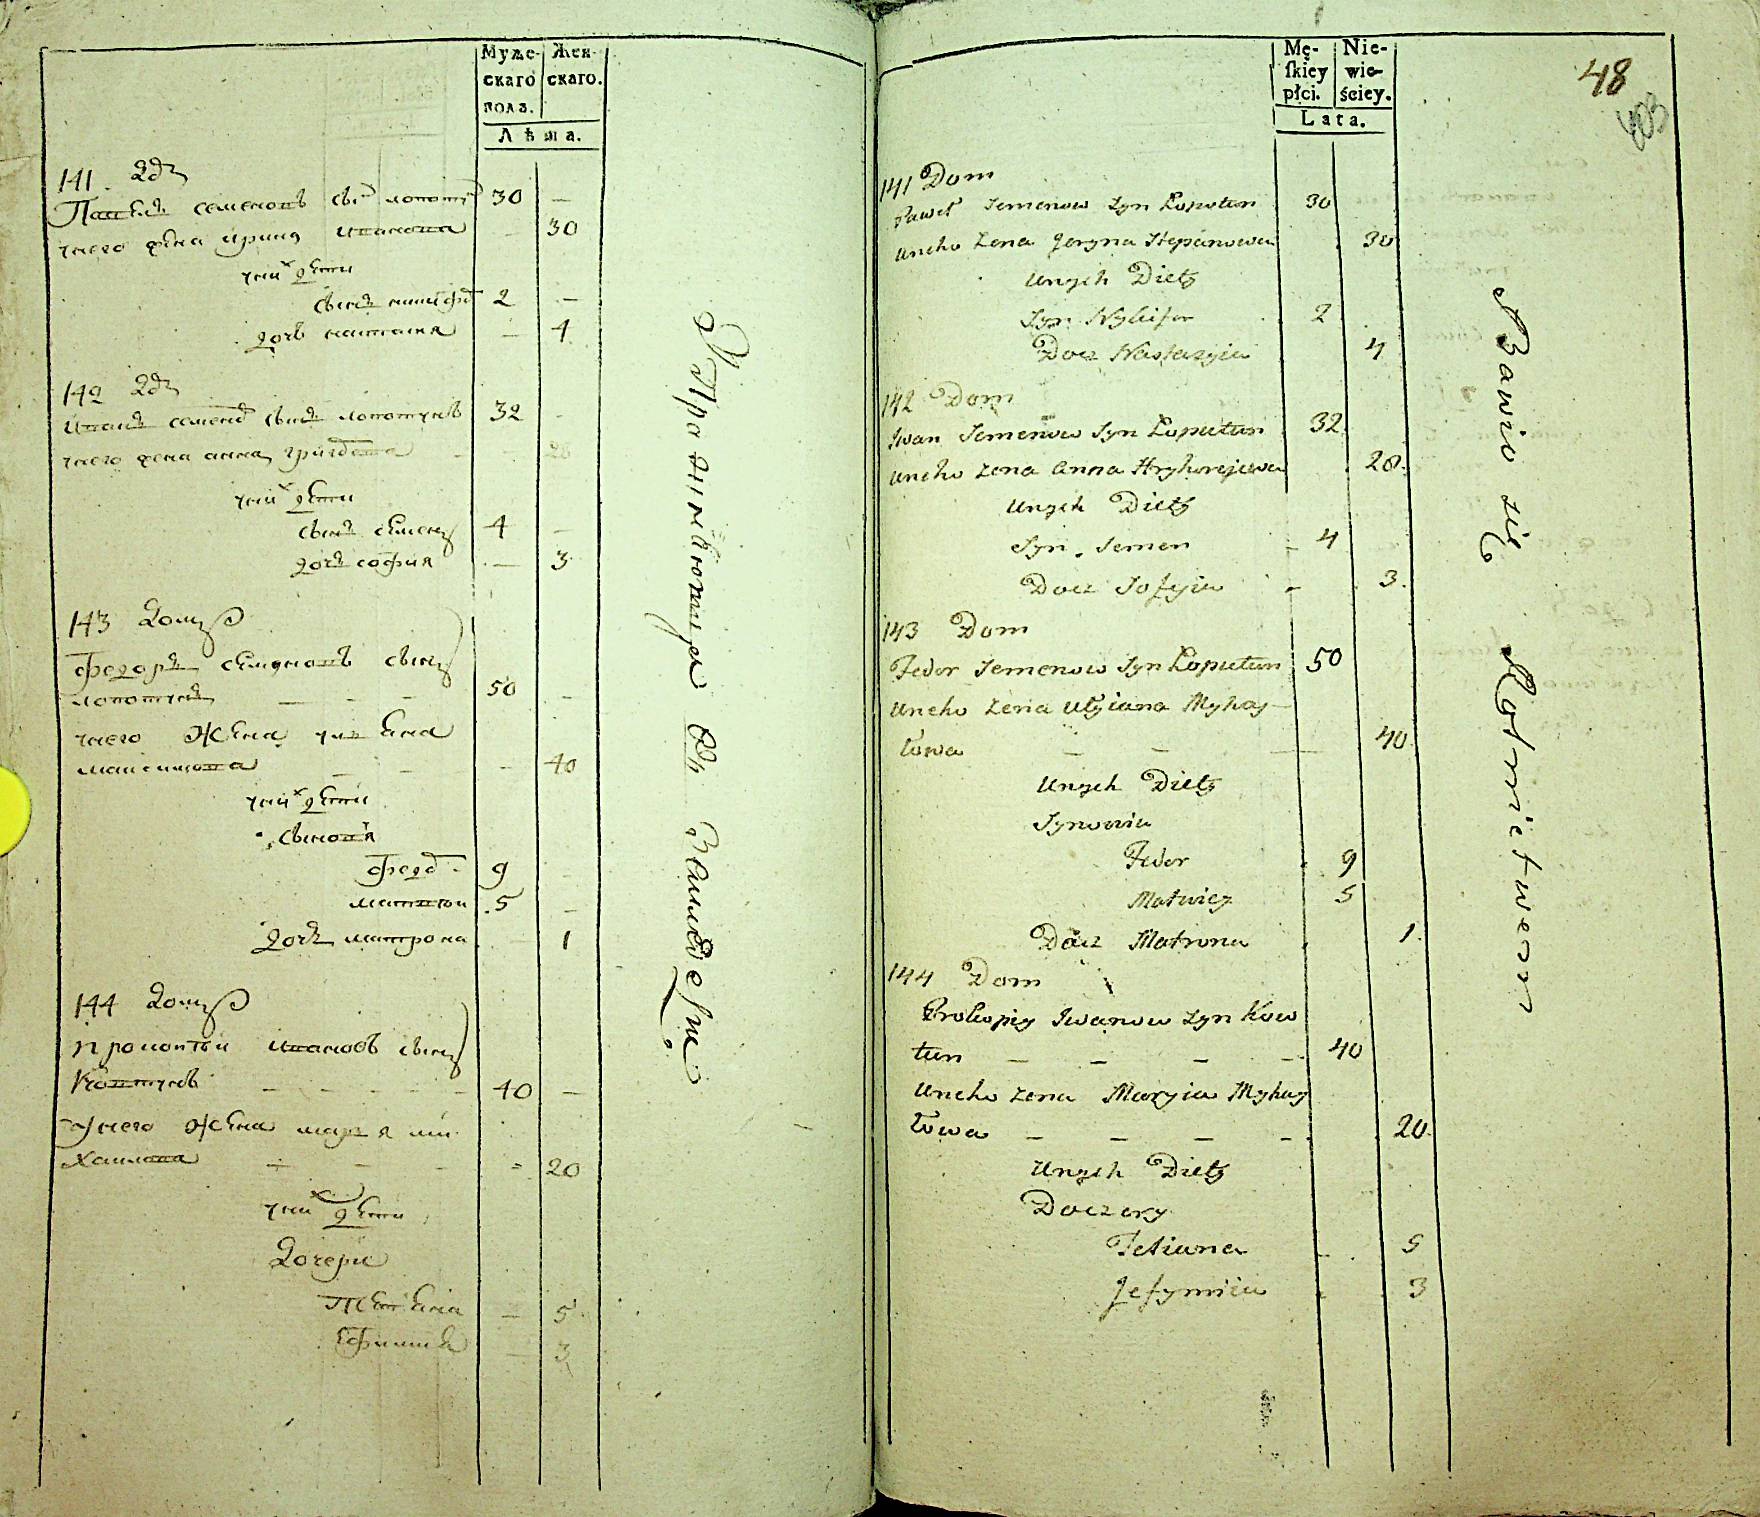 Муже-
скаго
полз.
Жен-
скаго.
Лѣта.
141 Дом
Павелъ семеновъ сынъ лопотун 30 —
унего жена ирина иванова — 30
унихъ дети
сынъ никифор 2 —
дочь настасия — 4
142 Дом
Иванъ семенов сынъ лопотунъ 32 -
унего жена анна григорева — 28
унихъ дети
сынъ семенъ 4 —
дочь софия — 3
143 Домъ
Федоръ семеновъ сынъ
лопотунъ — — 50 —
унего жена улияна
михайлова — — — 40
унихъ дети
сыновя
федор 9
матвей 5 —
дочь матрона — 1
144 Домъ
прокопий ивановъ сынъ
ковтунъ — — — 40 —
унего жена мария ми-
хайлова — — — 20
унихъ дети
дочери
тетяна — 5
ефимия — 3
Пропитываются
землед
48
403
Mę-
skiey
płci.
Nie-
wie-
ściey.
Lata.
141 Dom
Paweł Semenow Syn Łoputun 30
uneho Zena Jeryna Stepanowa 30
unych Diety
Syn Nykifor 2
Docz Nastazyia 4
142 Dom
Iwan Semenow Syn Łoputun 32
uneho Zena Anna Hryhorejewa 28
unych Diety
Syn Semen 4
Docz Sofyia 3
143 Dom
Fedor Semenow Syn Łoputun 50
uneho Zena Ulyiana Myhay-
łowa — — — 40
unych Diety
Synowia
Fedor 9
Matwiey 5
Docz Matrona 1
144 Dom
Prokopiy Iwanow Syn Kow
tun — — — — 40
uneho Zena Maryia Myhay
łowa — — — — 20
unych Diety
Doczery
Tetiana 5
Jefymiia 3
Bawio się Rolnictwem